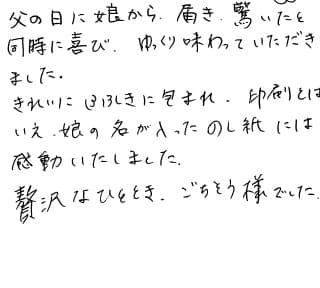 父の日に娘から、届き、驚いたと
同時に喜び、ゆっくり味わっていただき
ました。
きれいに ふろしきに包まれ、印刷とは
いえ、娘の名が入った のし紙には
感動いたしました。
贅沢なひととき、ごちそう様でした